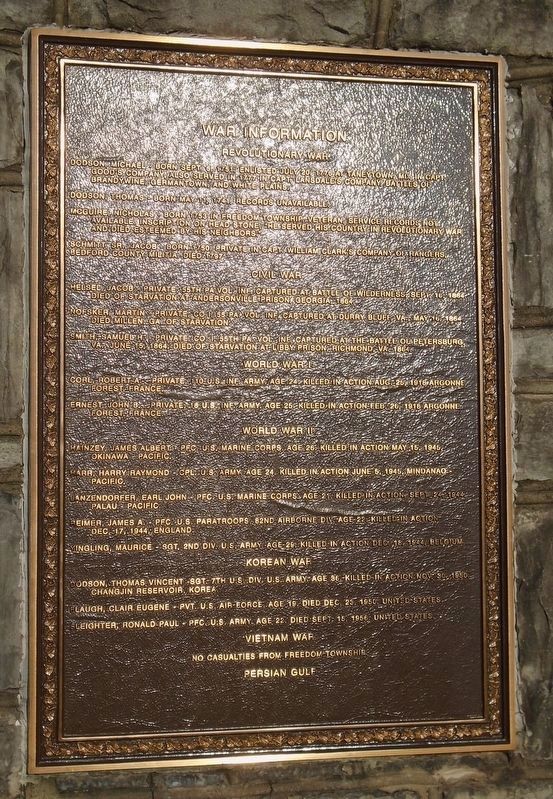 WAR INFORMATION
REVOLUTIONARY WAR
DODSON, MICHAEL - BORN SEPT. ENLISTED JULY 20, TANEYTOWN, MD. IN CAPT.
GOOD'S COMPANY. ALSO SERVED IN 1777 IN CAPT. COMPANY. BATTLES OF
BRANDYWINE, GERMANTOWN, AND WHITE PLAINS.
DODSON, THOMAS - BORN MAY RECORDS UNAVAILABLE.
MCGUIRE, NICHOLAS - BORN 1753 IN FREEDOM TOWNSHIP. VETERAN SERVICE RECORDS NOT
AVAILABLE. INSCRIPTION ON HEAD STONE. "HE SERVED HIS COUNTRY IN REVOLUTIONARY WAR
AND DIED ESTEEMED BY HIS NEIGHBORS."
SCHMITT, SR., JACOB - BORN 1750. PRIVATE IN CAPT. WILLIAM CLARK'S COMPANY OF RANGERS,
BEDFORD COUNTY MILITIA. DIED 1797.
CIVIL WAR
HELSEL, JACOB - PRIVATE, 55TH PA. VOL. INF. CAPTURED AT BATTEL OF WILDERNESS, SEPT. 1864
DIED OF STARVATION AT ANDERSONVILLE PRISON, GEORGIA, 1864.
NOFSKER, MARTIN - PRIVATE, CO. I, 55 PA. VOL. INF. CAPTURED AT DURRY BLUFF, VA., MAY 16, 1864
DIED, MILLEN, GA. OF STARVATION.
SMITH, SAMUEL H. - PRIVATE, CO. I, 55TH PA. VOL. INF. CAPTURED AT THE BATTEL OF PETERSBURG,
VA., JUNE 15, 1864. DIED OF STARVATION AT LIBBY PRISON, RICHMOND, VA. 1864.
WORLD WAR I
CORL, ROBERT A. - PRIVATE, 110 U.S. INF. ARMY. AGE 24. KILLED IN ACTION AUG. 25, 1918 ARGONNE
FOREST, FRANCE.
ERNEST, JOHN B. - PRIVATE, 18 U.S. INF. ARMY. AGE 25. KILLED IN ACTION FEB. 26, 1918 ARGONNE
FOREST, FRANCE.
WORLD WAR II
HAINZEY, JAMES ALBERT - PFC. U.S. MARINE CORPS. AGE 26. KILLED IN ACTION MAY 15, 1945,
OKINAWA - PACIFIC.
HARRY RAYMOND - CPL. U.S. ARMY. AGE 24. KILLED IN ACTION JUNE 5, 1945, MINDANAO -
PACIFIC.
EARL JOHN - PFC. U.S. MARINE CORPS. AGE 21. KILLED IN ACTION SEPT. 24, 1944,
PALAU - PACIFIC
JAMES A. - PFC. U.S. PARATROOPS, 82ND AIRBORNE DIV. AGE 22. KILLED IN ACTION
DEC. 17, 1944, ENGLAND.
MAURICE - SGT. 2ND DIV. U.S. ARMY. AGE 29. KILLED IN ACTION DEC. 1944, BELGIUM.
KOREAN WAR
DODSON, THOMAS VINCENT - SGT. 7TH U.S. DIV. U.S. ARMY. AGE KILLED IN ACTION NOV. 30, 1950
CHANGJIN RESERVOIR, KOREA
CLAIR EUGENE - PVT. U.S. AIR FORCE. AGE 19. DIED DEC. 23, 1950, UNITED STATES.
SLEIGHTER, RONALD PAUL - PFC. U.S. ARMY. AGE 22. DIED SEPT. 15, UNITED STATES.
VIETNAM WAR
NO CASUALTIES FROM FREEDOM TOWNSHIP
PERSIAN GULF